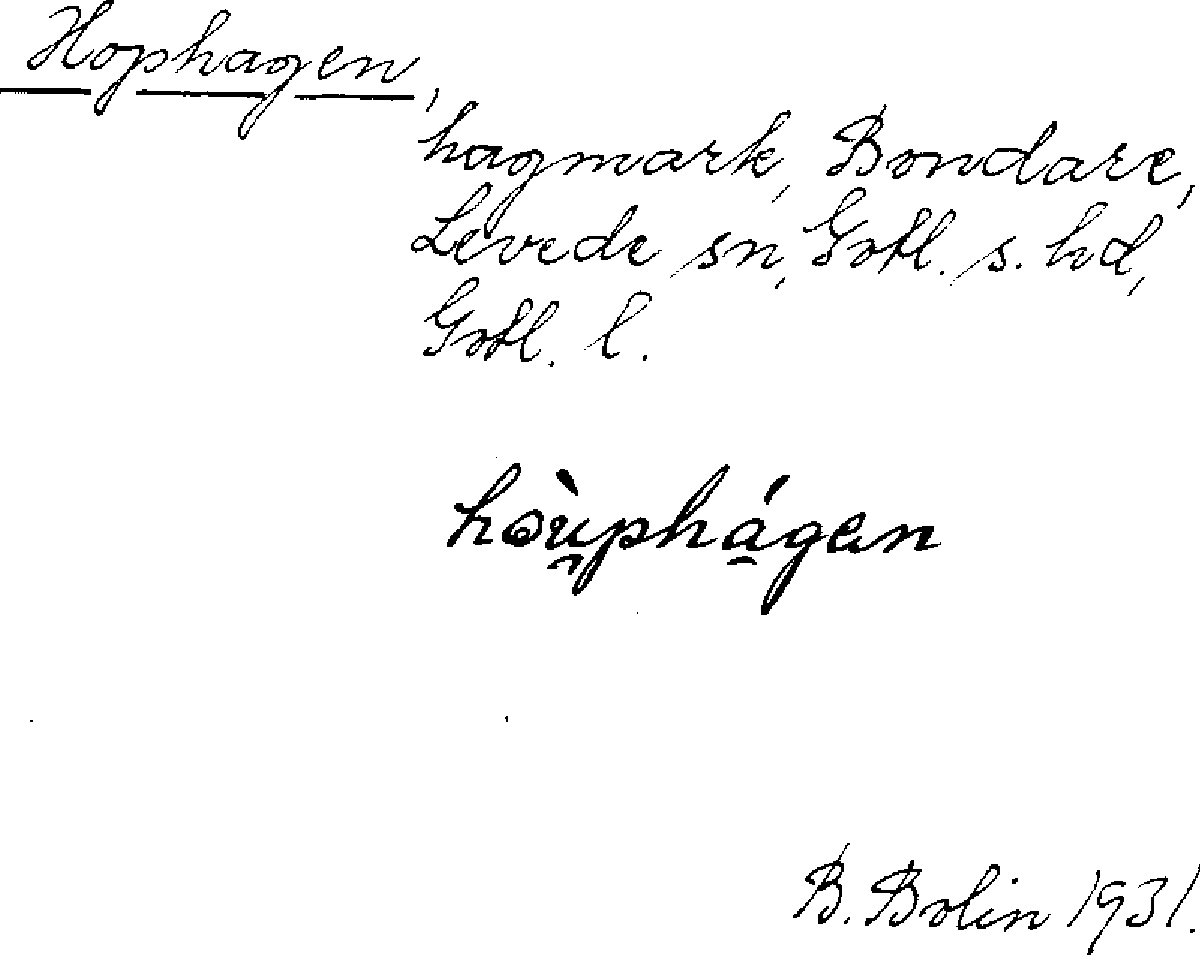 Hophagen,
hagmark, Bondare,
Levede sn, Gotl. s. hd,
Gotl. l.
həùphágen
B. Bolin 1931.